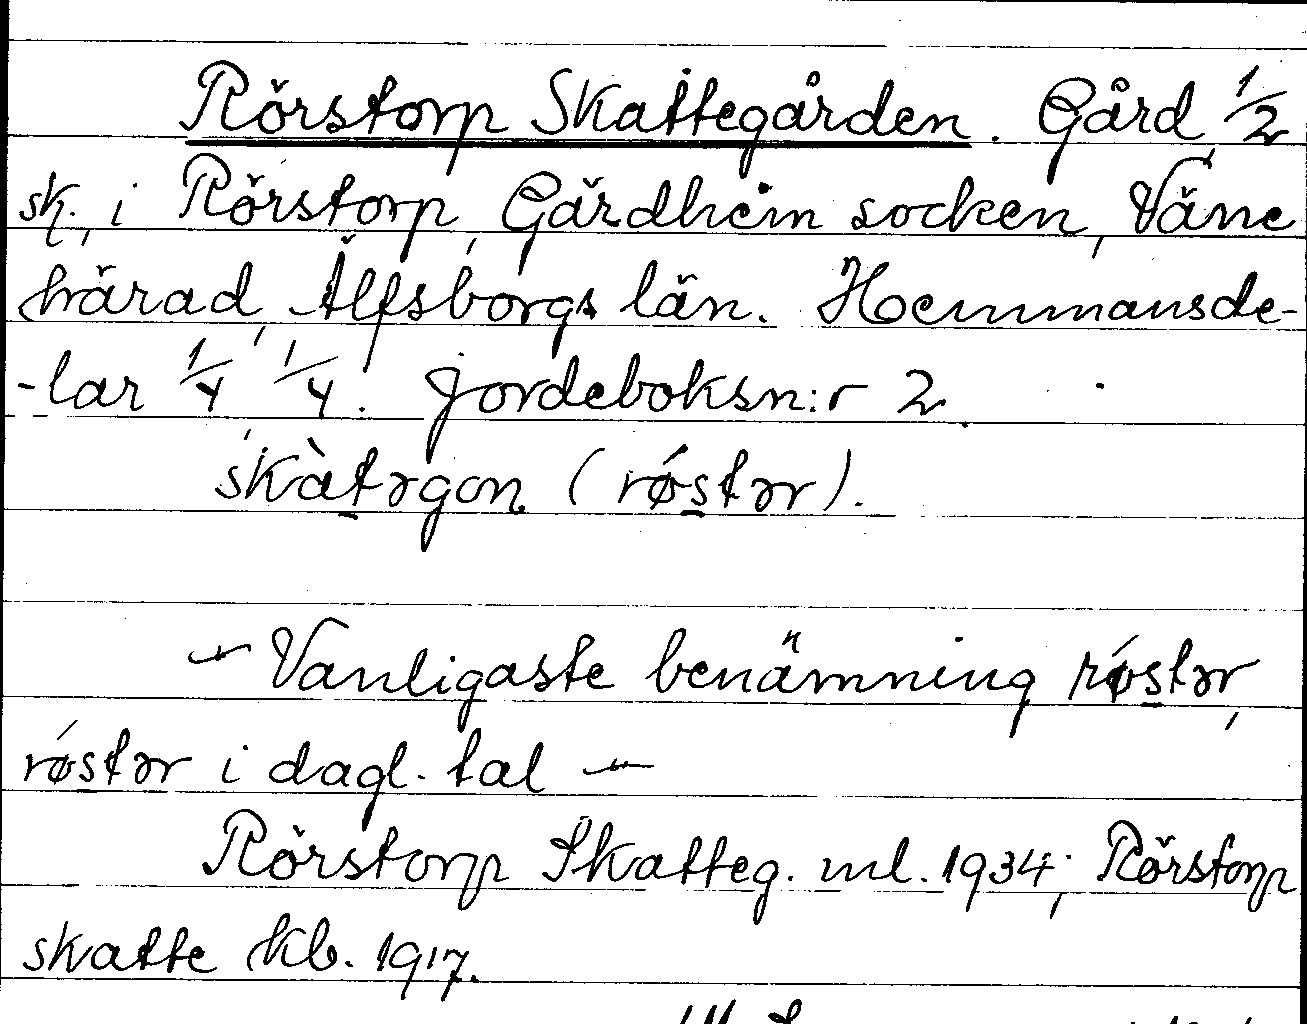 Rörstorp Skattegården. Gård 1/2
sk., i Rörstorp, Gärdhem socken, Väne
härad, Älfsborgs län. Hemmansde-
-lar 1/4, 1/4. Jordeboksn:r 2.
skàtəgon (røstər).
— Vanligaste benämning røstər,
røstər i dagl. tal —
Rörstorp Skatteg. ml. 1934; Rörstorp
skatte kb. 1917.